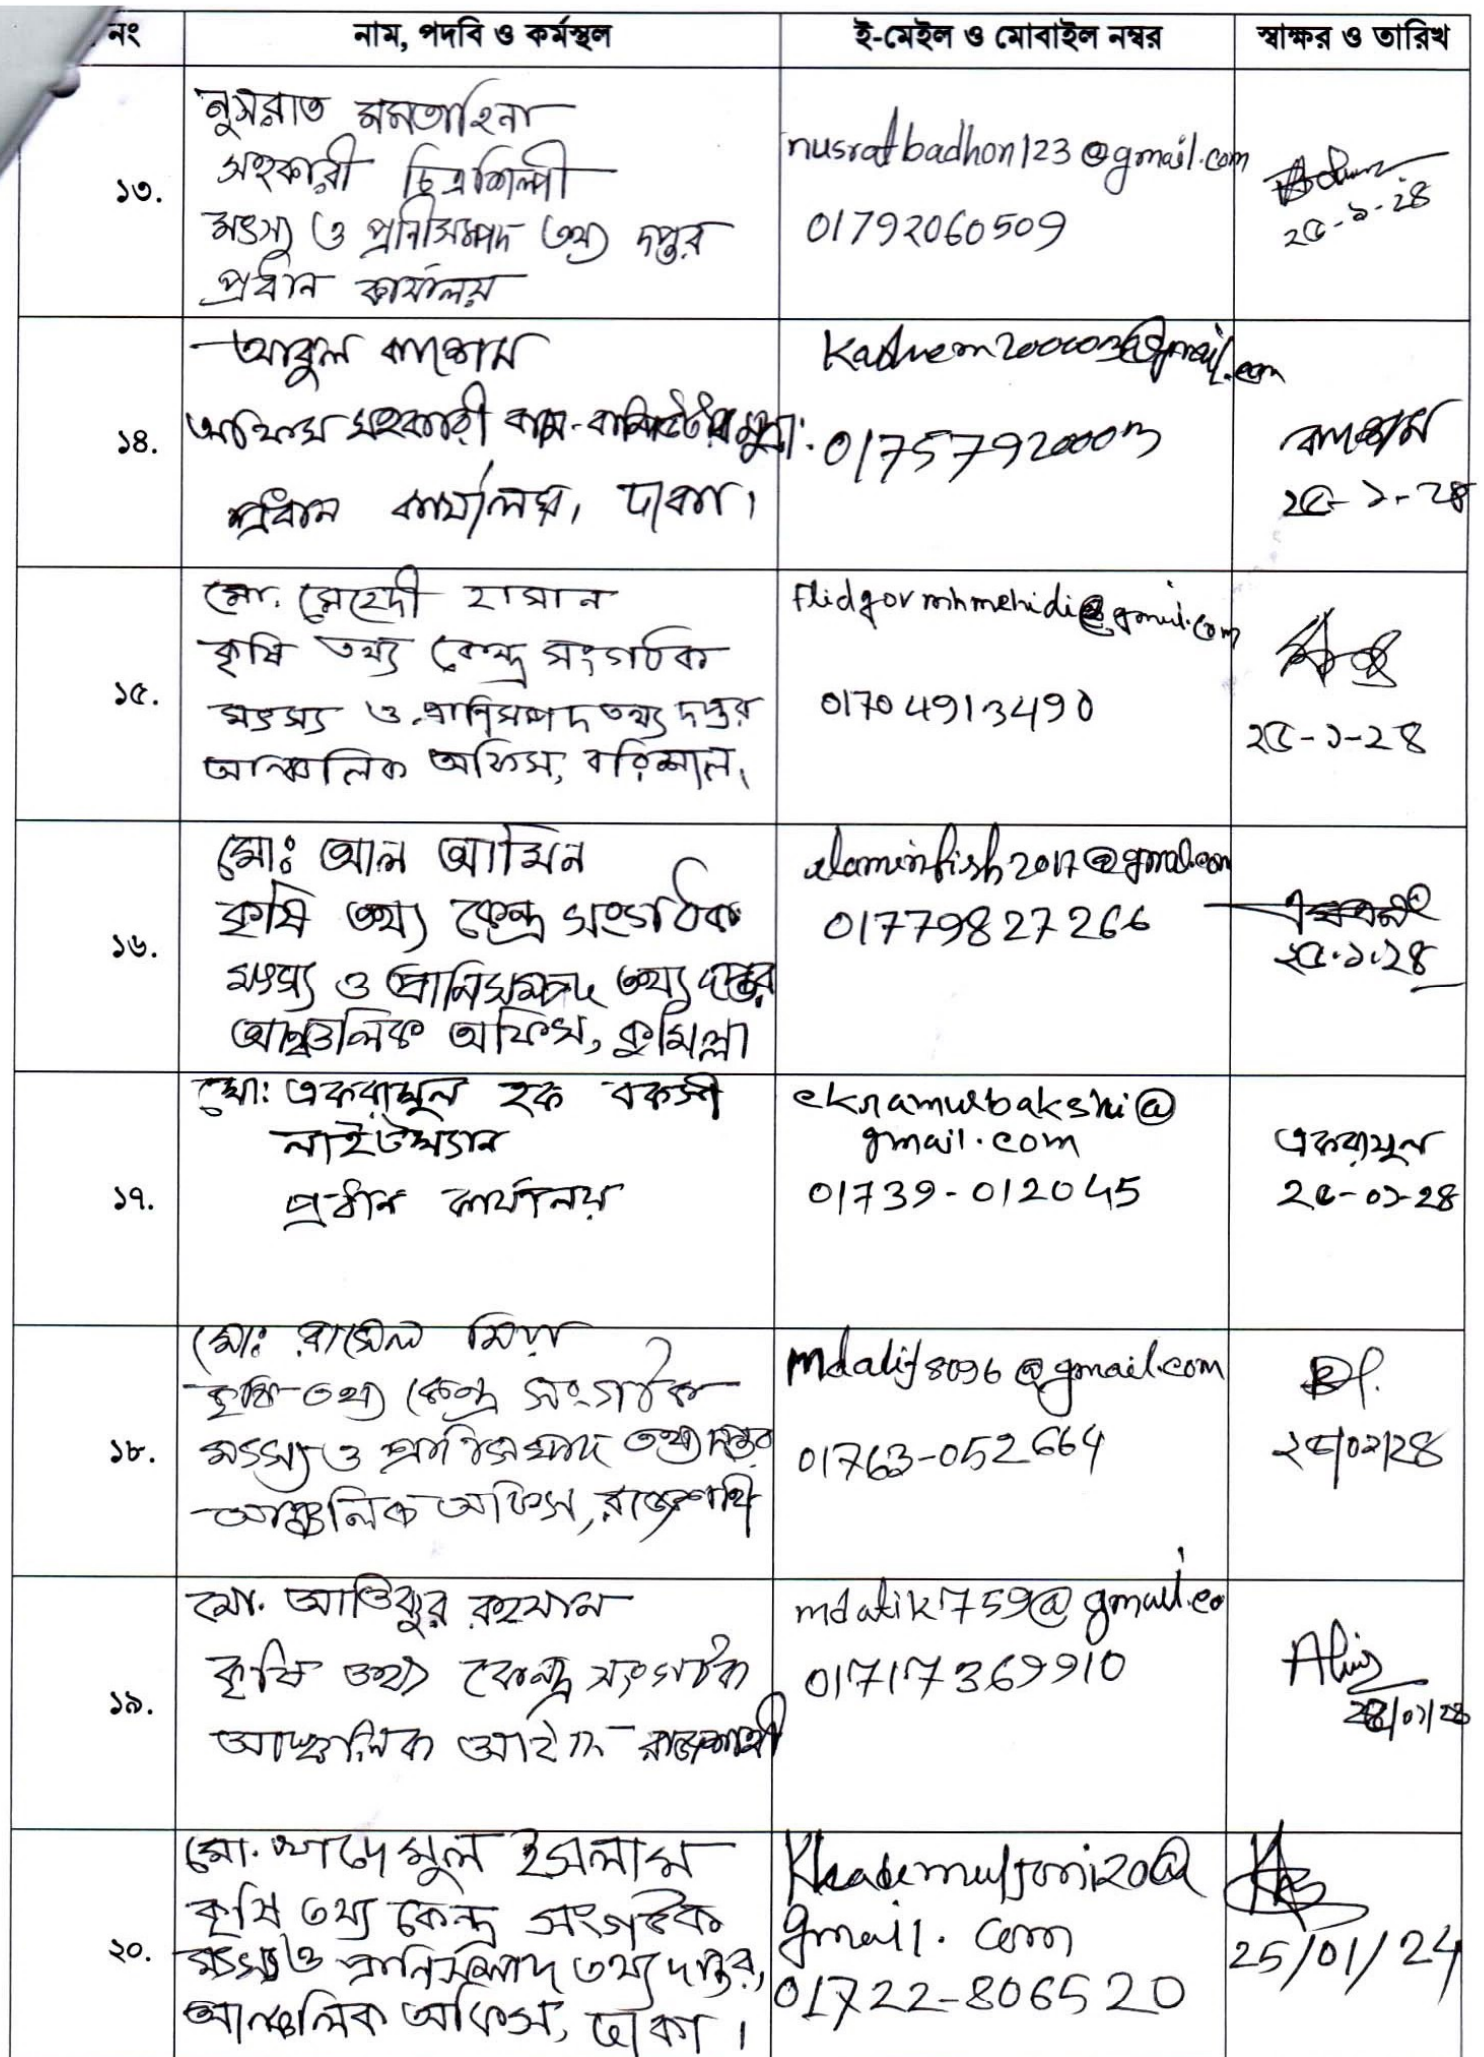 নং নাম, পদবি ও কর্মস্থল ই-মেইল ও মোবাইল নম্বর স্বাক্ষর ও তারিখ
১৩.
নুসরাত মমতাহিনা
সহকারী চিত্রশিল্পী
মৎস্য ও প্রানীসম্পদ তথ্য দপ্তর
প্রধান কার্যালয়
nusratbadhon123@gmail.com
01792060509
২৫-১-২৪
১৪.
আবুল কাশেম
অফিস সহকারী কাম-
প্রধান কার্যালয়, ঢাকা।
কাশেম
২৫-১-২৪
১৫.
মো. মেহেদী হাসান
কৃষি তথ্য কেন্দ্র সংগঠক
মৎস্য ও প্রাণিসম্পদ তথ্য দপ্তর
আঞ্চলিক অফিস, বরিশাল।
flidgovmhmehidi@gmail.com
01704913490
২৫-১-২৪
১৬.
মোঃ আল আমিন
কৃষি তথ্য কেন্দ্র সংগঠক
মৎস্য ও প্রানিসম্পদ তথ্য দপ্তর
আঞ্চলিক অফিস, কুমিল্লা
alaminfish2017@gmail.com
01779827266
২৫.১.২৪
১৭.
মো: একরামুল হক বকসী
লাইটম্যান
প্রধান কার্যালয়
ekramulbakshi@
gmail.com
01739-012045
একরামুল
২৫-০১-২৪
১৮.
মোঃ রাসেল মিয়া
কৃষি তথ্য কেন্দ্র সংগঠক
মৎস্য ও প্রাণিসম্পদ তথ্য দপ্তর
আঞ্চলিক অফিস, রাজশাহী
mdalif8096@gmail.com
01763-052664
২৫/০১/২৪
১৯.
মো. আতিকুর রহমান
কৃষি তথ্য কেন্দ্র সংগঠক
আঞ্চলিক অফিস রাজশাহী
mdatik759@gmail.co
01717369910
২০.
মো. খাদেমুল ইসলাম
কৃষি তথ্য কেন্দ্র সংগঠক
মৎস্য ও প্রানিসম্পদ তথ্য দপ্তর,
আঞ্চলিক অফিস, ঢাকা।
gmail.com
01722-806520
25/01/24